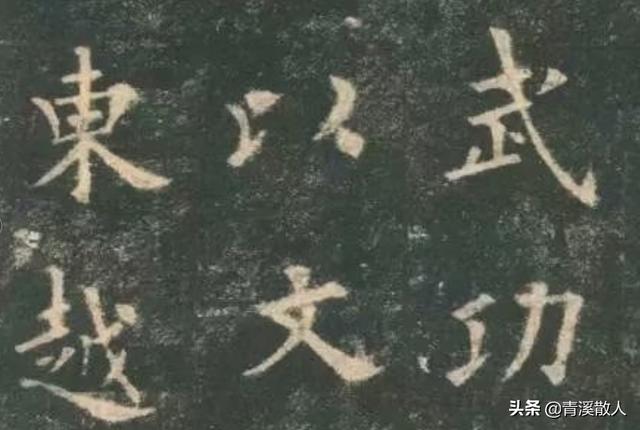 武功
以文
東越
头条 @青溪散人